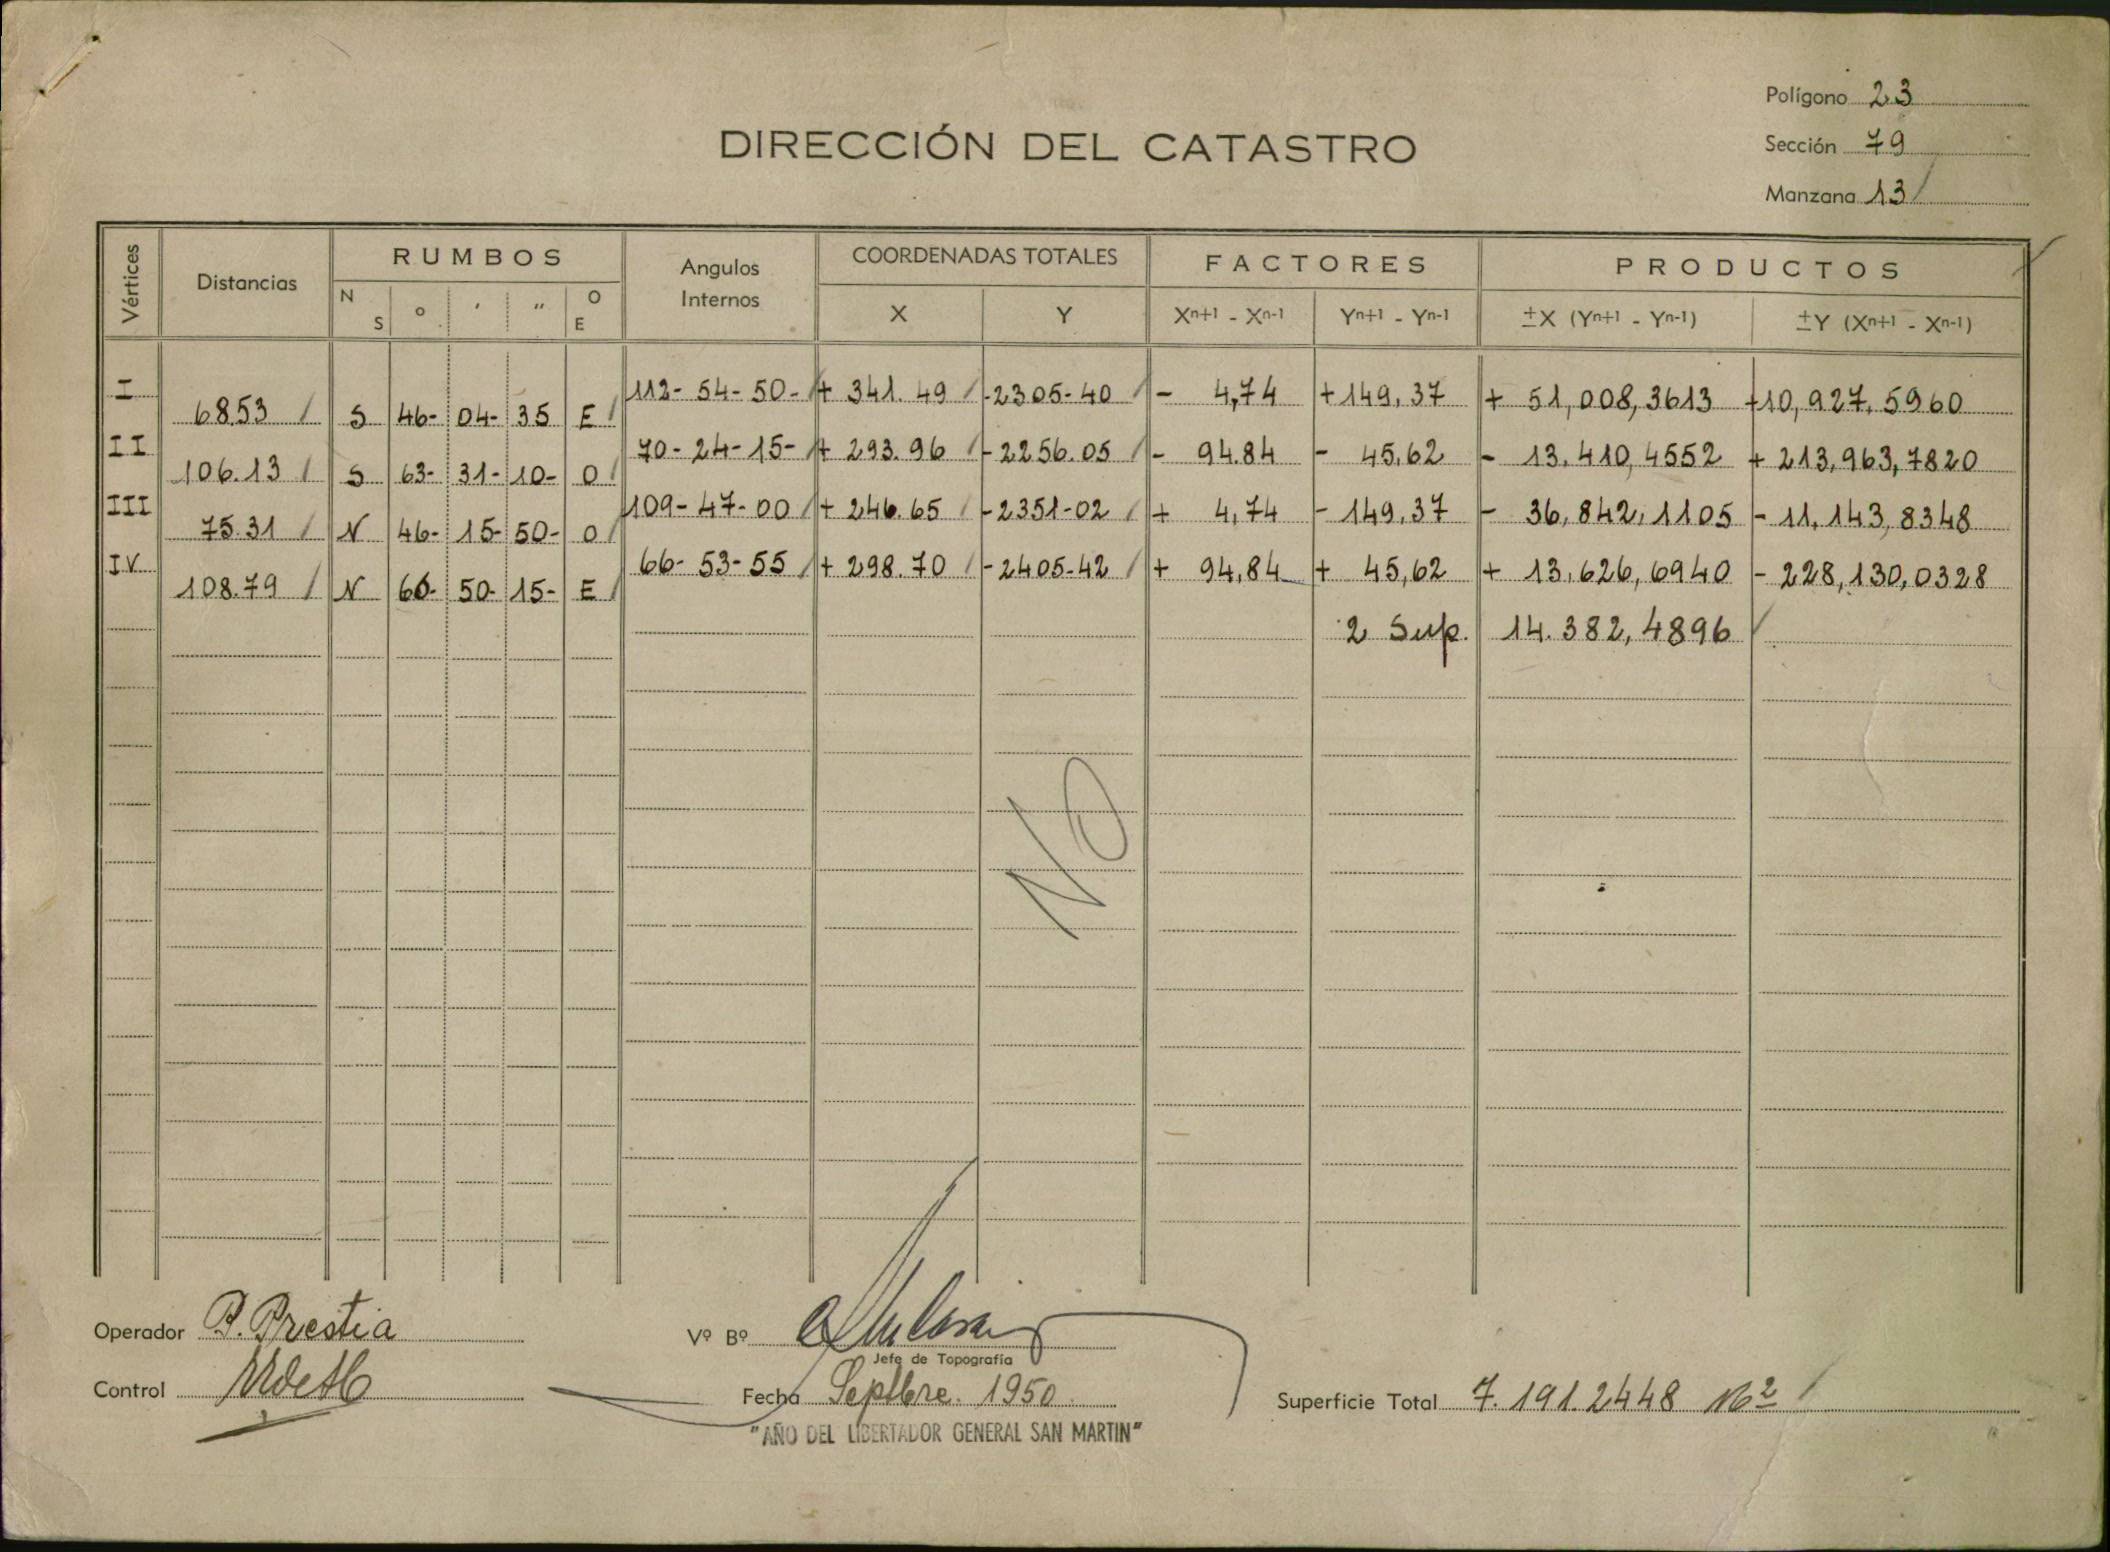 Polígono 23
DIRECCIÓN DEL CATASTRO
Sección 79
Manzana 13
Vértices Distancias RUMBOS Angulos Internos COORDENADAS TOTALES FACTORES PRODUCTOS
N S ° ' " O E X Y Xⁿ⁺¹ - Xⁿ⁻¹ Yⁿ⁺¹ - Yⁿ⁻¹ ±X (Yⁿ⁺¹ - Yⁿ⁻¹) ±Y (Xⁿ⁺¹ - Xⁿ⁻¹)
I 112-54-50- + 341.49 -2305-40 - 4,74 +149,37 + 51,008,3613 +10,927,5960
68.53 S 46- 04- 35 E
II 70-24-15- + 293.96 -2256.05 - 94.84 - 45,62 - 13.410,4552 + 213,963,7820
106.13 S 63- 31- 10- O
III 109-47-00 + 246.65 -2351-02 + 4,74 - 149,37 - 36,842,1105 - 11,143,8348
75.31 N 46- 15- 50- O
IV 66-53-55 + 298.70 -2405-42 + 94,84 + 45,62 + 13,626,6940 - 228,130,0328
108.79 N 60- 50- 15- E
2 Sup. 14.382,4896
NO
Operador P. Prestia
Vº Bº
Jefe de Topografía
Control
Fecha Septbre. 1950
Superficie Total 7.191.2448 M²
"AÑO DEL LIBERTADOR GENERAL SAN MARTIN"